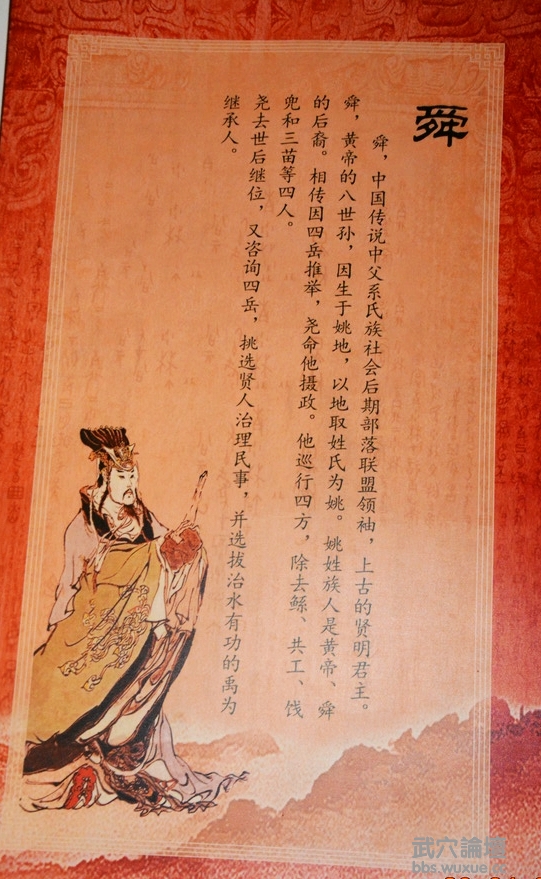 舜
舜，中国传说中父系氏族社会后期部落联盟领袖，上古的贤明君主。
舜，黄帝的八世孙，因生于姚地，以地取姓氏为姚。姚姓族人是黄帝、舜
的后裔。相传因四岳推举，尧命他摄政。他巡行四方，除去鲧、共工、饯
兜和三苗等四人。
尧去世后继位，又咨询四岳，挑选贤人治理民事，并选拔治水有功的禹为
继承人。
武穴論壇